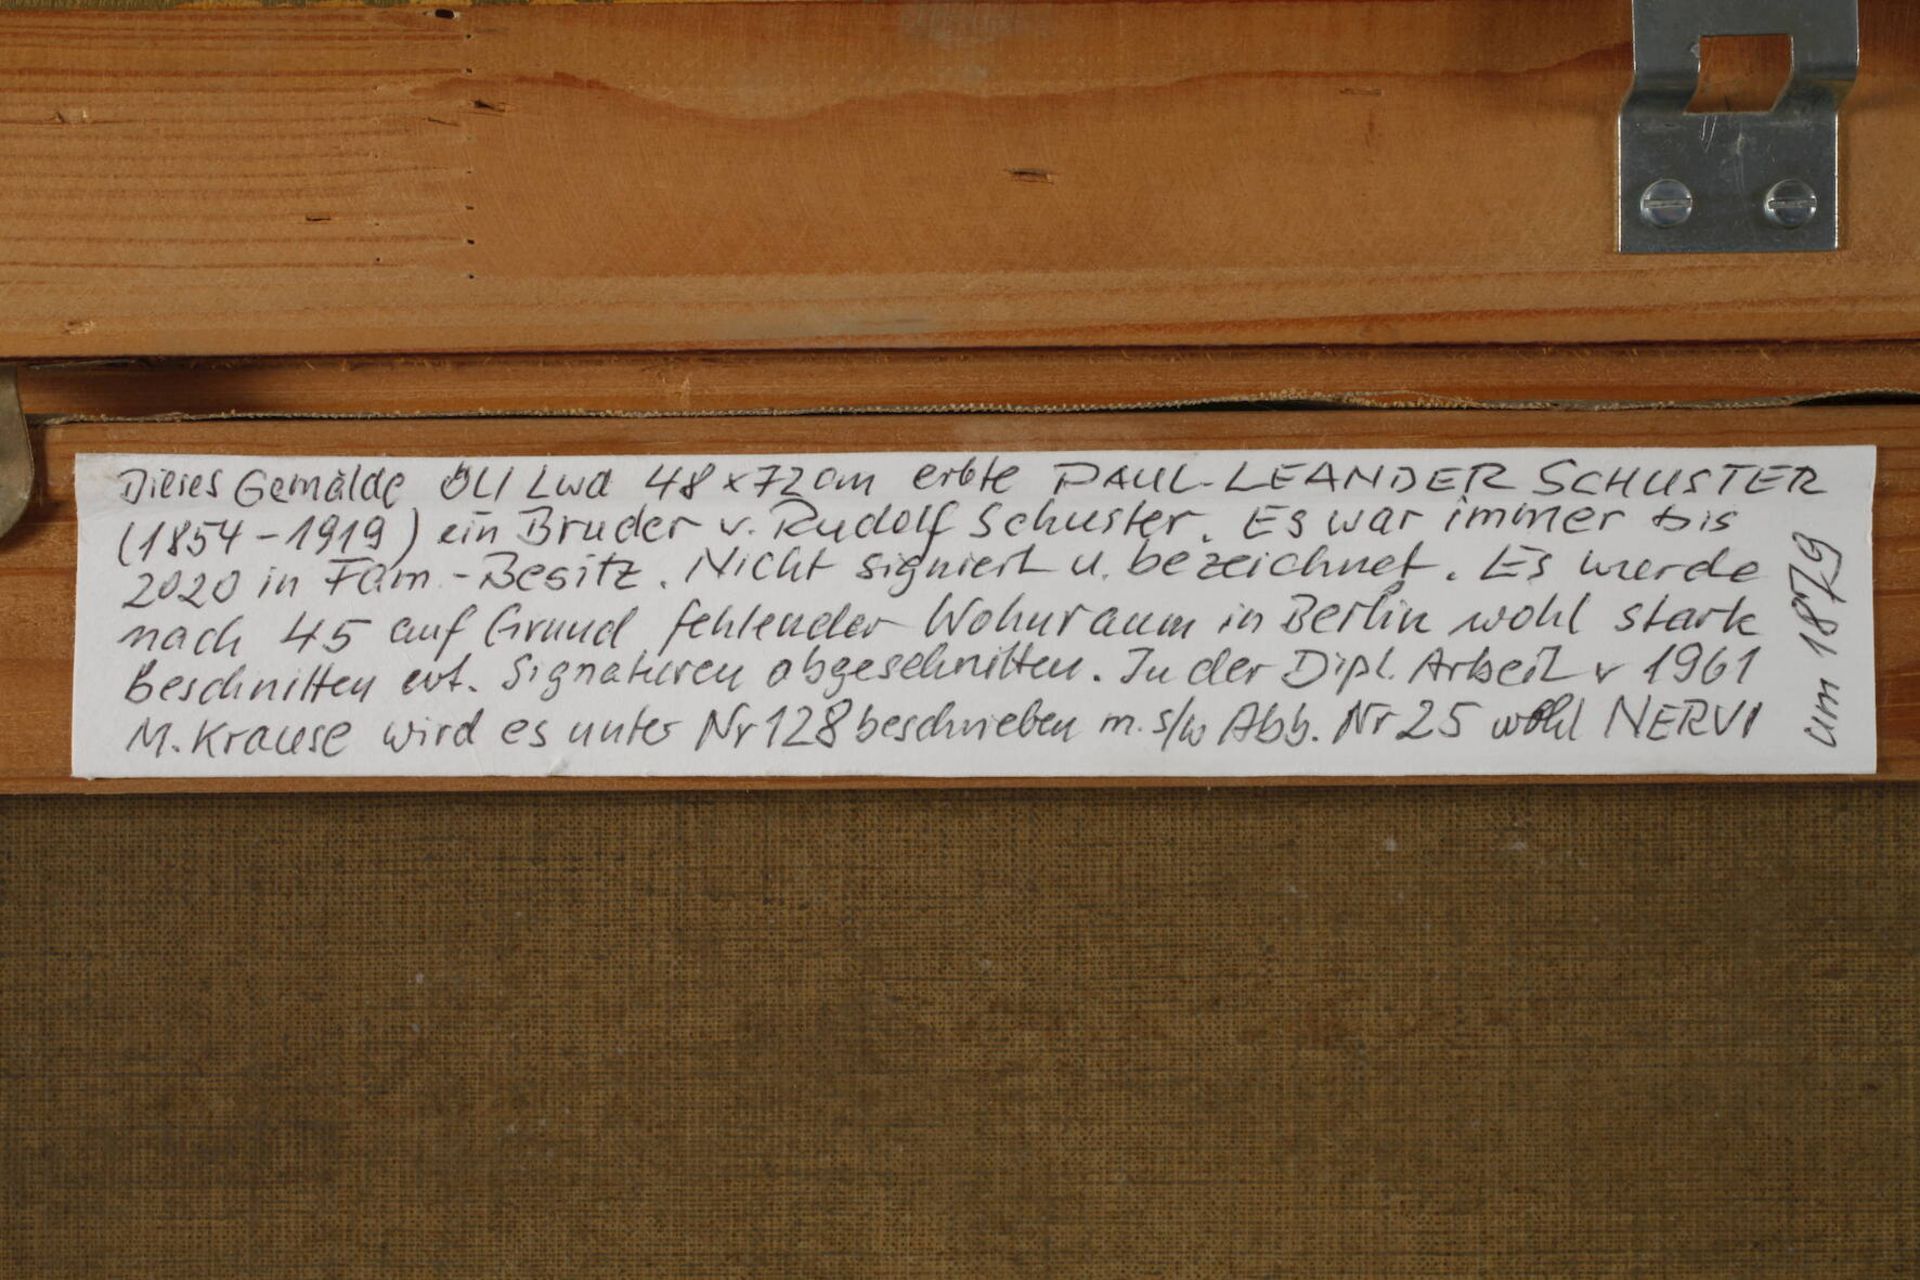 Dieses Gemälde Öl/Lwd 48x72cm erbte PAUL-LEANDER SCHUSTER
(1854-1919) ein Bruder v. Rudolf Schuster. Es war immer bis
2020 in Fam.-Besitz. Nicht signiert u. bezeichnet. Es wurde
nach 45 auf Grund fehlender Wohnraum in Berlin wohl stark
beschnitten evt. Signaturen abgeschnitten. In der Dipl. Arbeit v 1961
M. Krause wird es unter Nr 128 beschrieben m. s/w Abb. Nr 25 wohl NERVI
um 1879